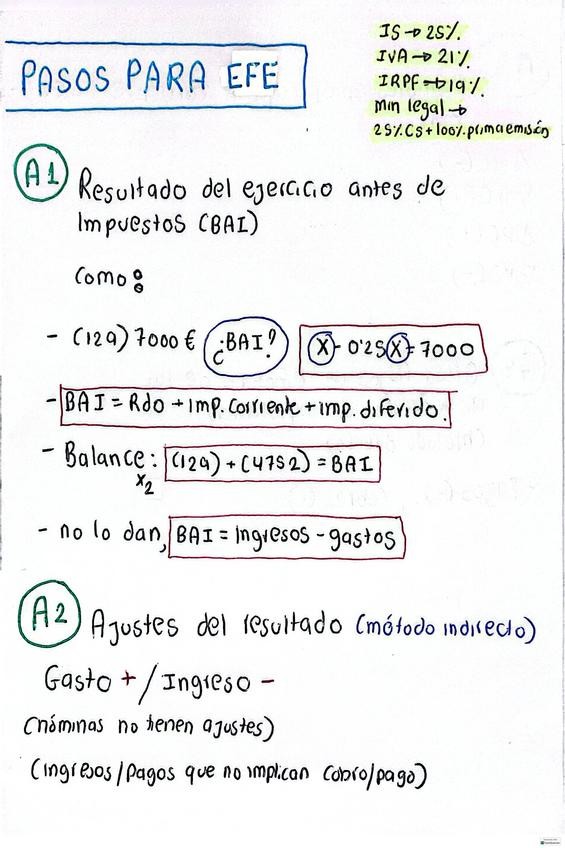 IS → 25%
IVA → 21%
IRPF → 19%
Min legal →
25% CS + 100% prima emisión
PASOS PARA EFE
A1 Resultado del ejercicio antes de
Impuestos (BAI)
Como:
- (129) 7000 € ¿BAI? X - 0'25 X = 7000
- BAI = Rdo + imp. corriente + imp. diferido.
- Balance: (129) + (4752) = BAI
x2
- no lo dan, BAI = Ingresos - gastos
A2 Ajustes del resultado (método indirecto)
Gasto + / Ingreso -
(nóminas no tienen ajustes)
(ingresos/pagos que no implican cobro/pago)